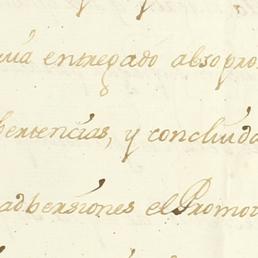 entregado absopro
bertencias, y concluida
adbersiones el Promo